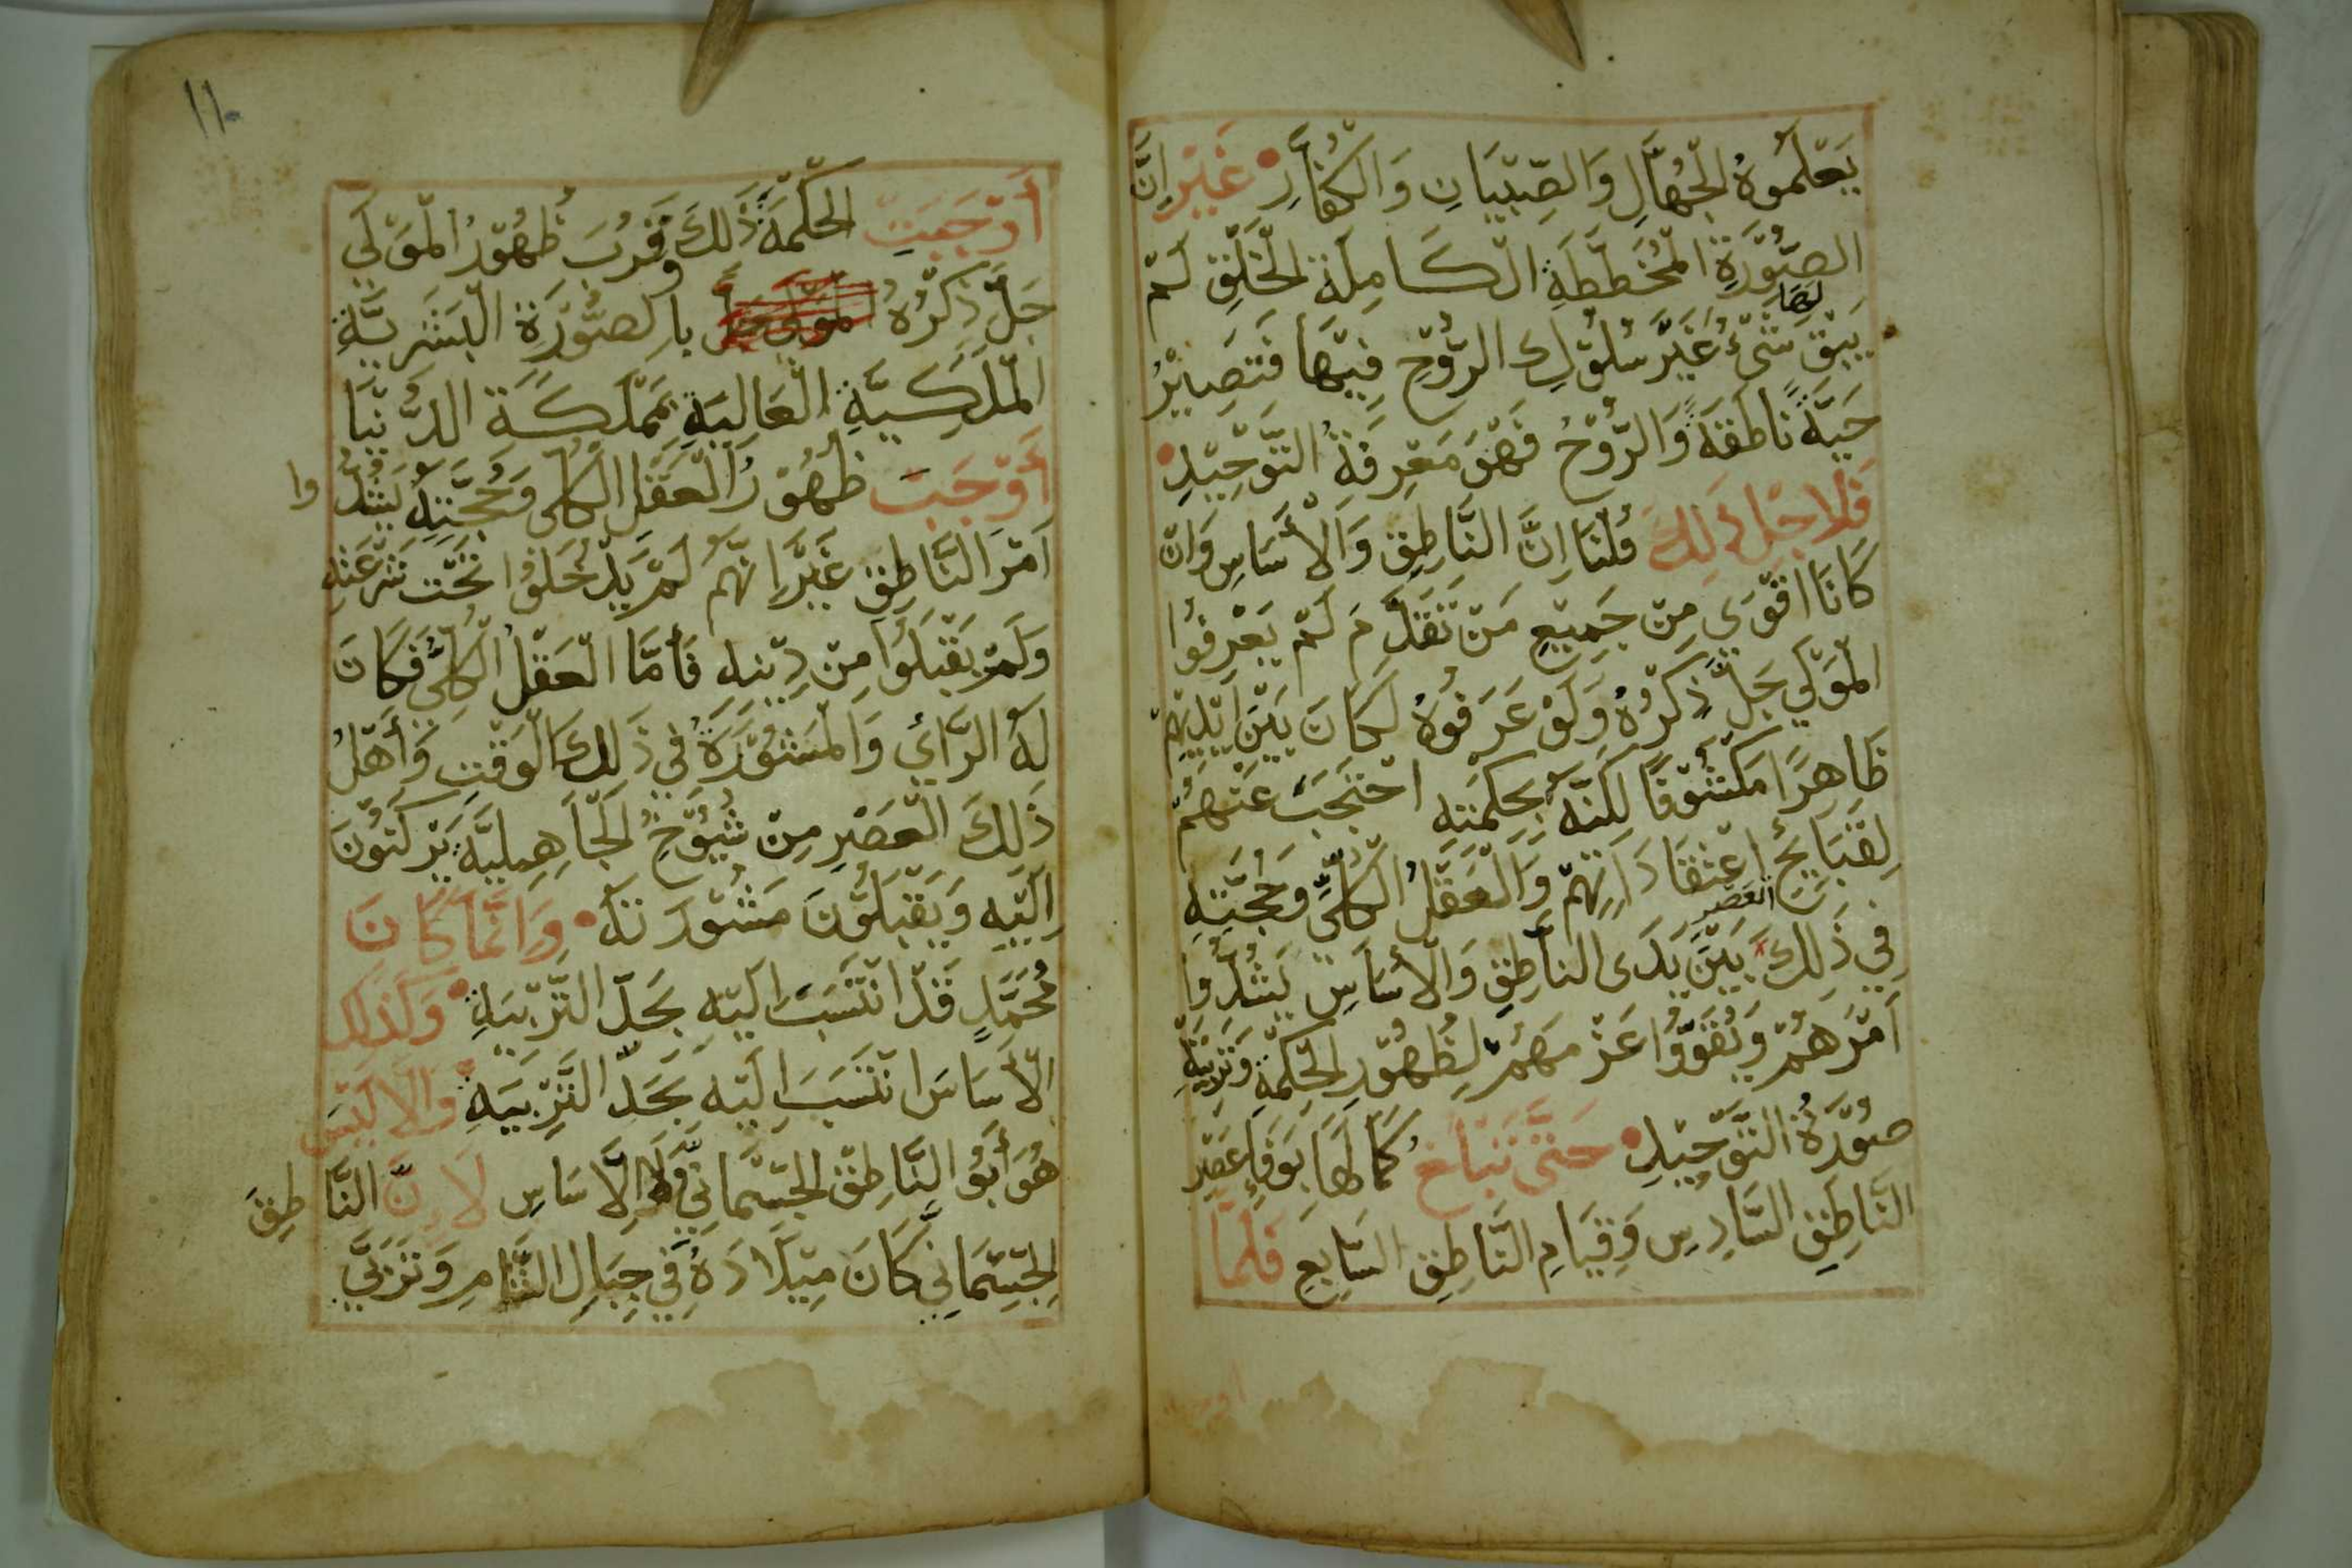 يَعْلَمُوهُ الْجُهَّالِ وَالصِّبْيَانِ وَالْكُفَّارِ غَيْرَ اِنَّ
الصُّوْرَةِ الْمُخَطَّطَةِ الْكَامِلَةِ الْخَلْقِ لَمْ
يَبْقَ لَهَا شَيْءٌ غَيْرَ سُلُوْكِ الرُّوْحِ فِيْهَا فَتَصِيْرُ
حَيَّةً نَاطِقَةً وَالرُّوْحُ فَهْوَ مَعْرِفَةُ التَّوْحِيْدِ
فَلِاَجْلِ ذَلِكَ قُلْنَا اِنَّ النَّاطِقِ وَالْأَسَاسِ وَاِنْ
كَانَا اَقْوَي مِنْ جَمِيْعِ مَنْ تَقَدَّمَ لَمْ يَعْرِفُوْا
الْمَوْلَي جَلَّ ذِكْرُهُ وَلَوْ عَرَفُوهُ لَكَانَ بَيْنَ اَيْدِيْهِمْ
ظَاهِرًا مَكْشُوْفًا لَكِنَّهُ بِحِكْمَتِهِ احْتَجَبَ عَنْهُمْ
لِقَبَايِحُ اعْتِقَادَاتِهِمْ وَالْعَقْلُ الْكُلِّيُّ وَحُجَّتِهِ
فِي ذَلِكَ الْعَصْرِ بَيْنَ يَدَى النَّاطِقِ وَالْأَسَاسِ يَشُدُّوا
اَمْرَهُمْ وَيُقَوُّوْا عَزْمَهُمْ لِظُهُوْرِ الْحِكْمَةِ وَتَرْبِيَةِ
صُوْرَةُ التَّوْحِيْدِ حَتَّى تَبْلُغَ كَمَالَهَا بِوَفَاءِ عَصْرِ
النَّاطِقِ السَّادِسِ وَقِيَامِ النَّاطِقِ السَّابِعِ فَلَمَّا
اوجبت
١١٠
أَوْجَبَتِ الْحِكْمَةُ ذَلِكَ وَقَرُبَ ظُهُوْرُ الْمَوْلَي
جَلَّ ذِكْرُهُ الْمَوْلَى جَلَّ بِالصُّوْرَةِ الْبَشَرِيَّةِ
الْمَلَكِيَّةِ الْعَالِيَةِ بِمَمْلَكَةِ الدُّنْيَا
أَوْجَبَتْ ظُهُوْرُ الْعَقْلِ الْكُلِّى وَحُجَّتِهِ يَشُدُّوا
اَمْرَ النَّاطِقِ غَيْرَ اِنَّهُمْ لَمْ يَدْخُلُوْا تَحْتَ شَرْعَتِهِ
وَلَمْ يَقْبَلُوْا مِنْ دِيْنِهِ فَأَمَّا الْعَقْلُ الْكُلِّيُّ فَكَانَ
لَهُ الرَّايُ وَالْمَشُوْرَةُ فِي ذَلِكَ الْوَقْتِ وَأَهْلُ
ذَلِكَ الْعَصْرِ مِنْ شُيُوْخِ الْجَاهِلِيَّةِ يَرْكَنُوْنَ
اِلَيْهِ وَيَقْبَلُوْنَ مَشُوْرَتَهُ وَاِنَّمَا كَانَ
مُحَمَّدٍ قَدْ انْتَسَبَ اِلَيْهِ بِحَدِّ التَّرْبِيَةِ وَكَذَلِكَ
الْأَسَاسَ انْتَسَبَ اِلَيْهِ بِحَدِّ التَّرْبِيَةِ وَاِلَّا لَيْسَ
هُوَ أَبُوْ النَّاطِقِ الْجِسْمَانِيِّ وَلَا الْاَسَاسِ لِاَنَّ النَّاطِقَ
الْجِسْمَانِيِّ كَانَ مِيْلَادَهُ فِي جِبَالِ الشَّامِ وَتَرَبَّي